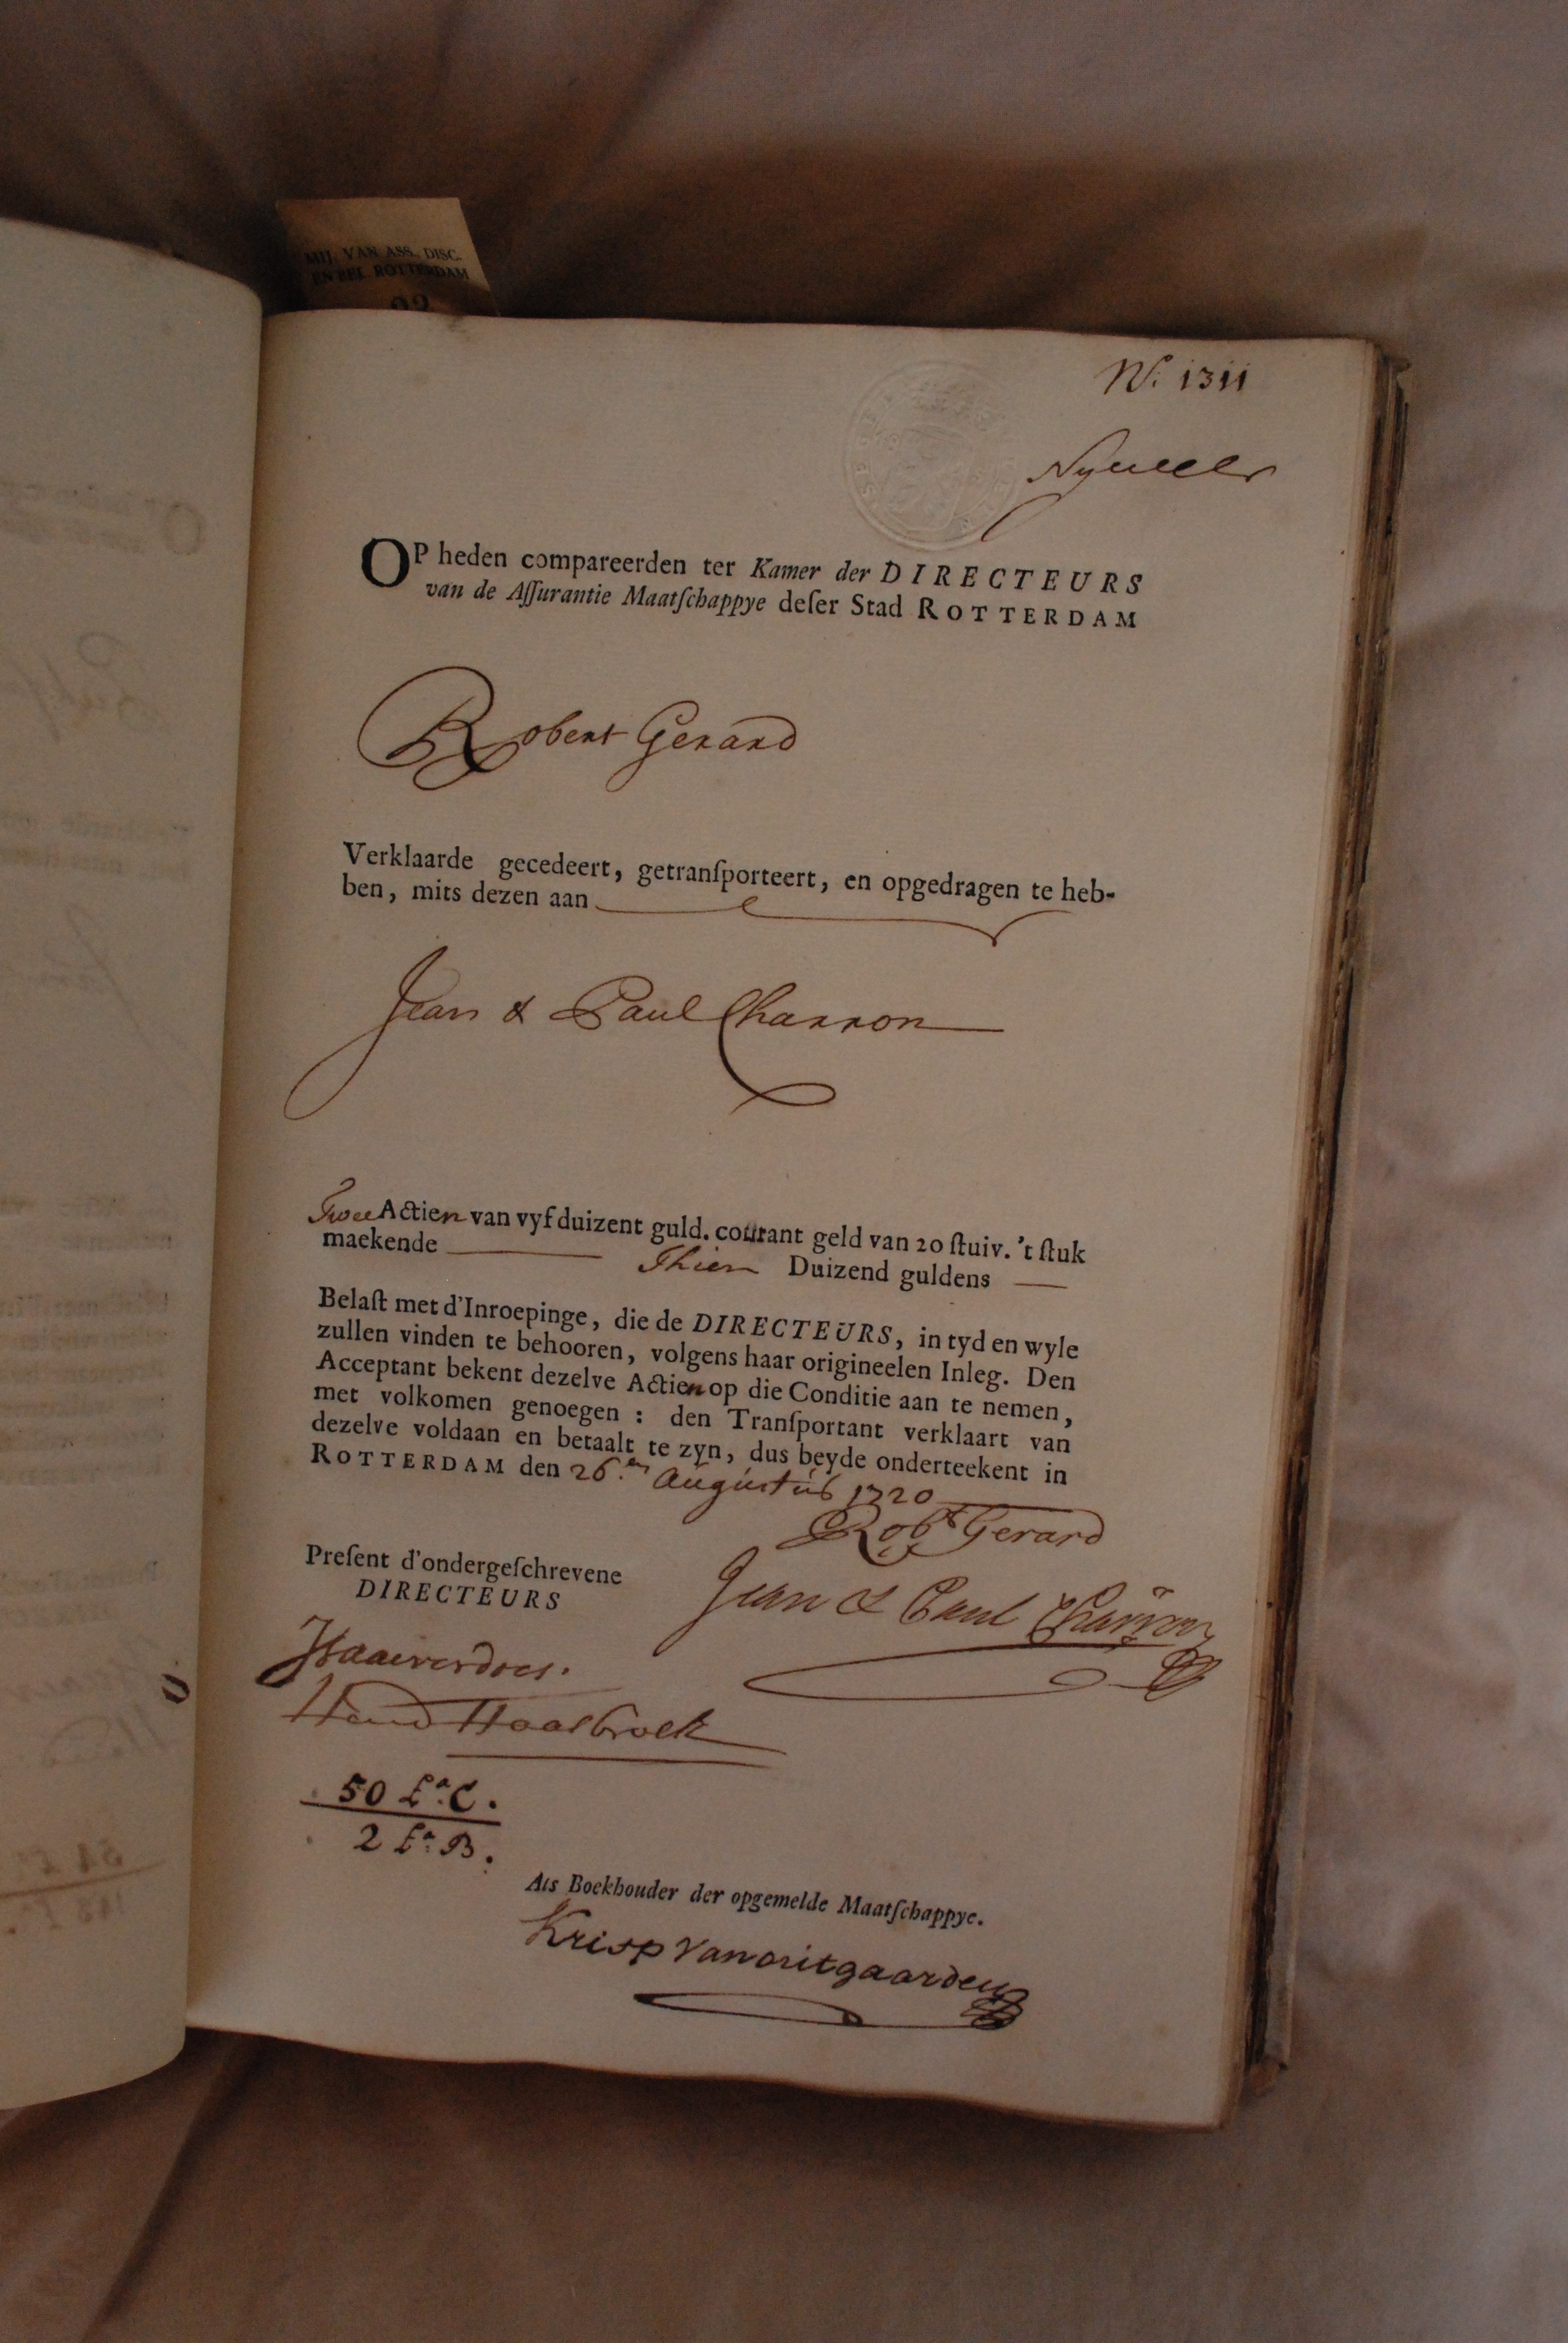 MIJ. VAN ASS. DISC.
EN BEL. ROTTERDAM
92
N.º 1311
OP heden compareerden ter Kamer der DIRECTEURS
van de Aſſurantie Maatſchappye deſer Stad ROTTERDAM
Robert Gerard
Verklaarde gecedeert, getranſporteert, en opgedragen te heb-
ben, mits dezen aan
Jean & Paul Charron
Twee Actien van vyf duizent guld. courant geld van 20 ſtuiv. 't ſtuk
maekende Thien Duizend guldens
Belaſt met d'Inroepinge, die de DIRECTEURS, in tyd en wyle
zullen vinden te behooren, volgens haar origineelen Inleg. Den
Acceptant bekent dezelve Actien op die Conditie aan te nemen,
met volkomen genoegen : den Tranſportant verklaart van
dezelve voldaan en betaalt te zyn, dus beyde onderteekent in
ROTTERDAM den 26.en Augustus 1720
Robt Gerard
Preſent d'ondergeſchrevene
DIRECTEURS
Jean & Paul Charron
Hend Haasbroek
50 La. C.
2 La. B.
Als Boekhouder der opgemelde Maatſchappye.
Krisp Vanoritgaarden